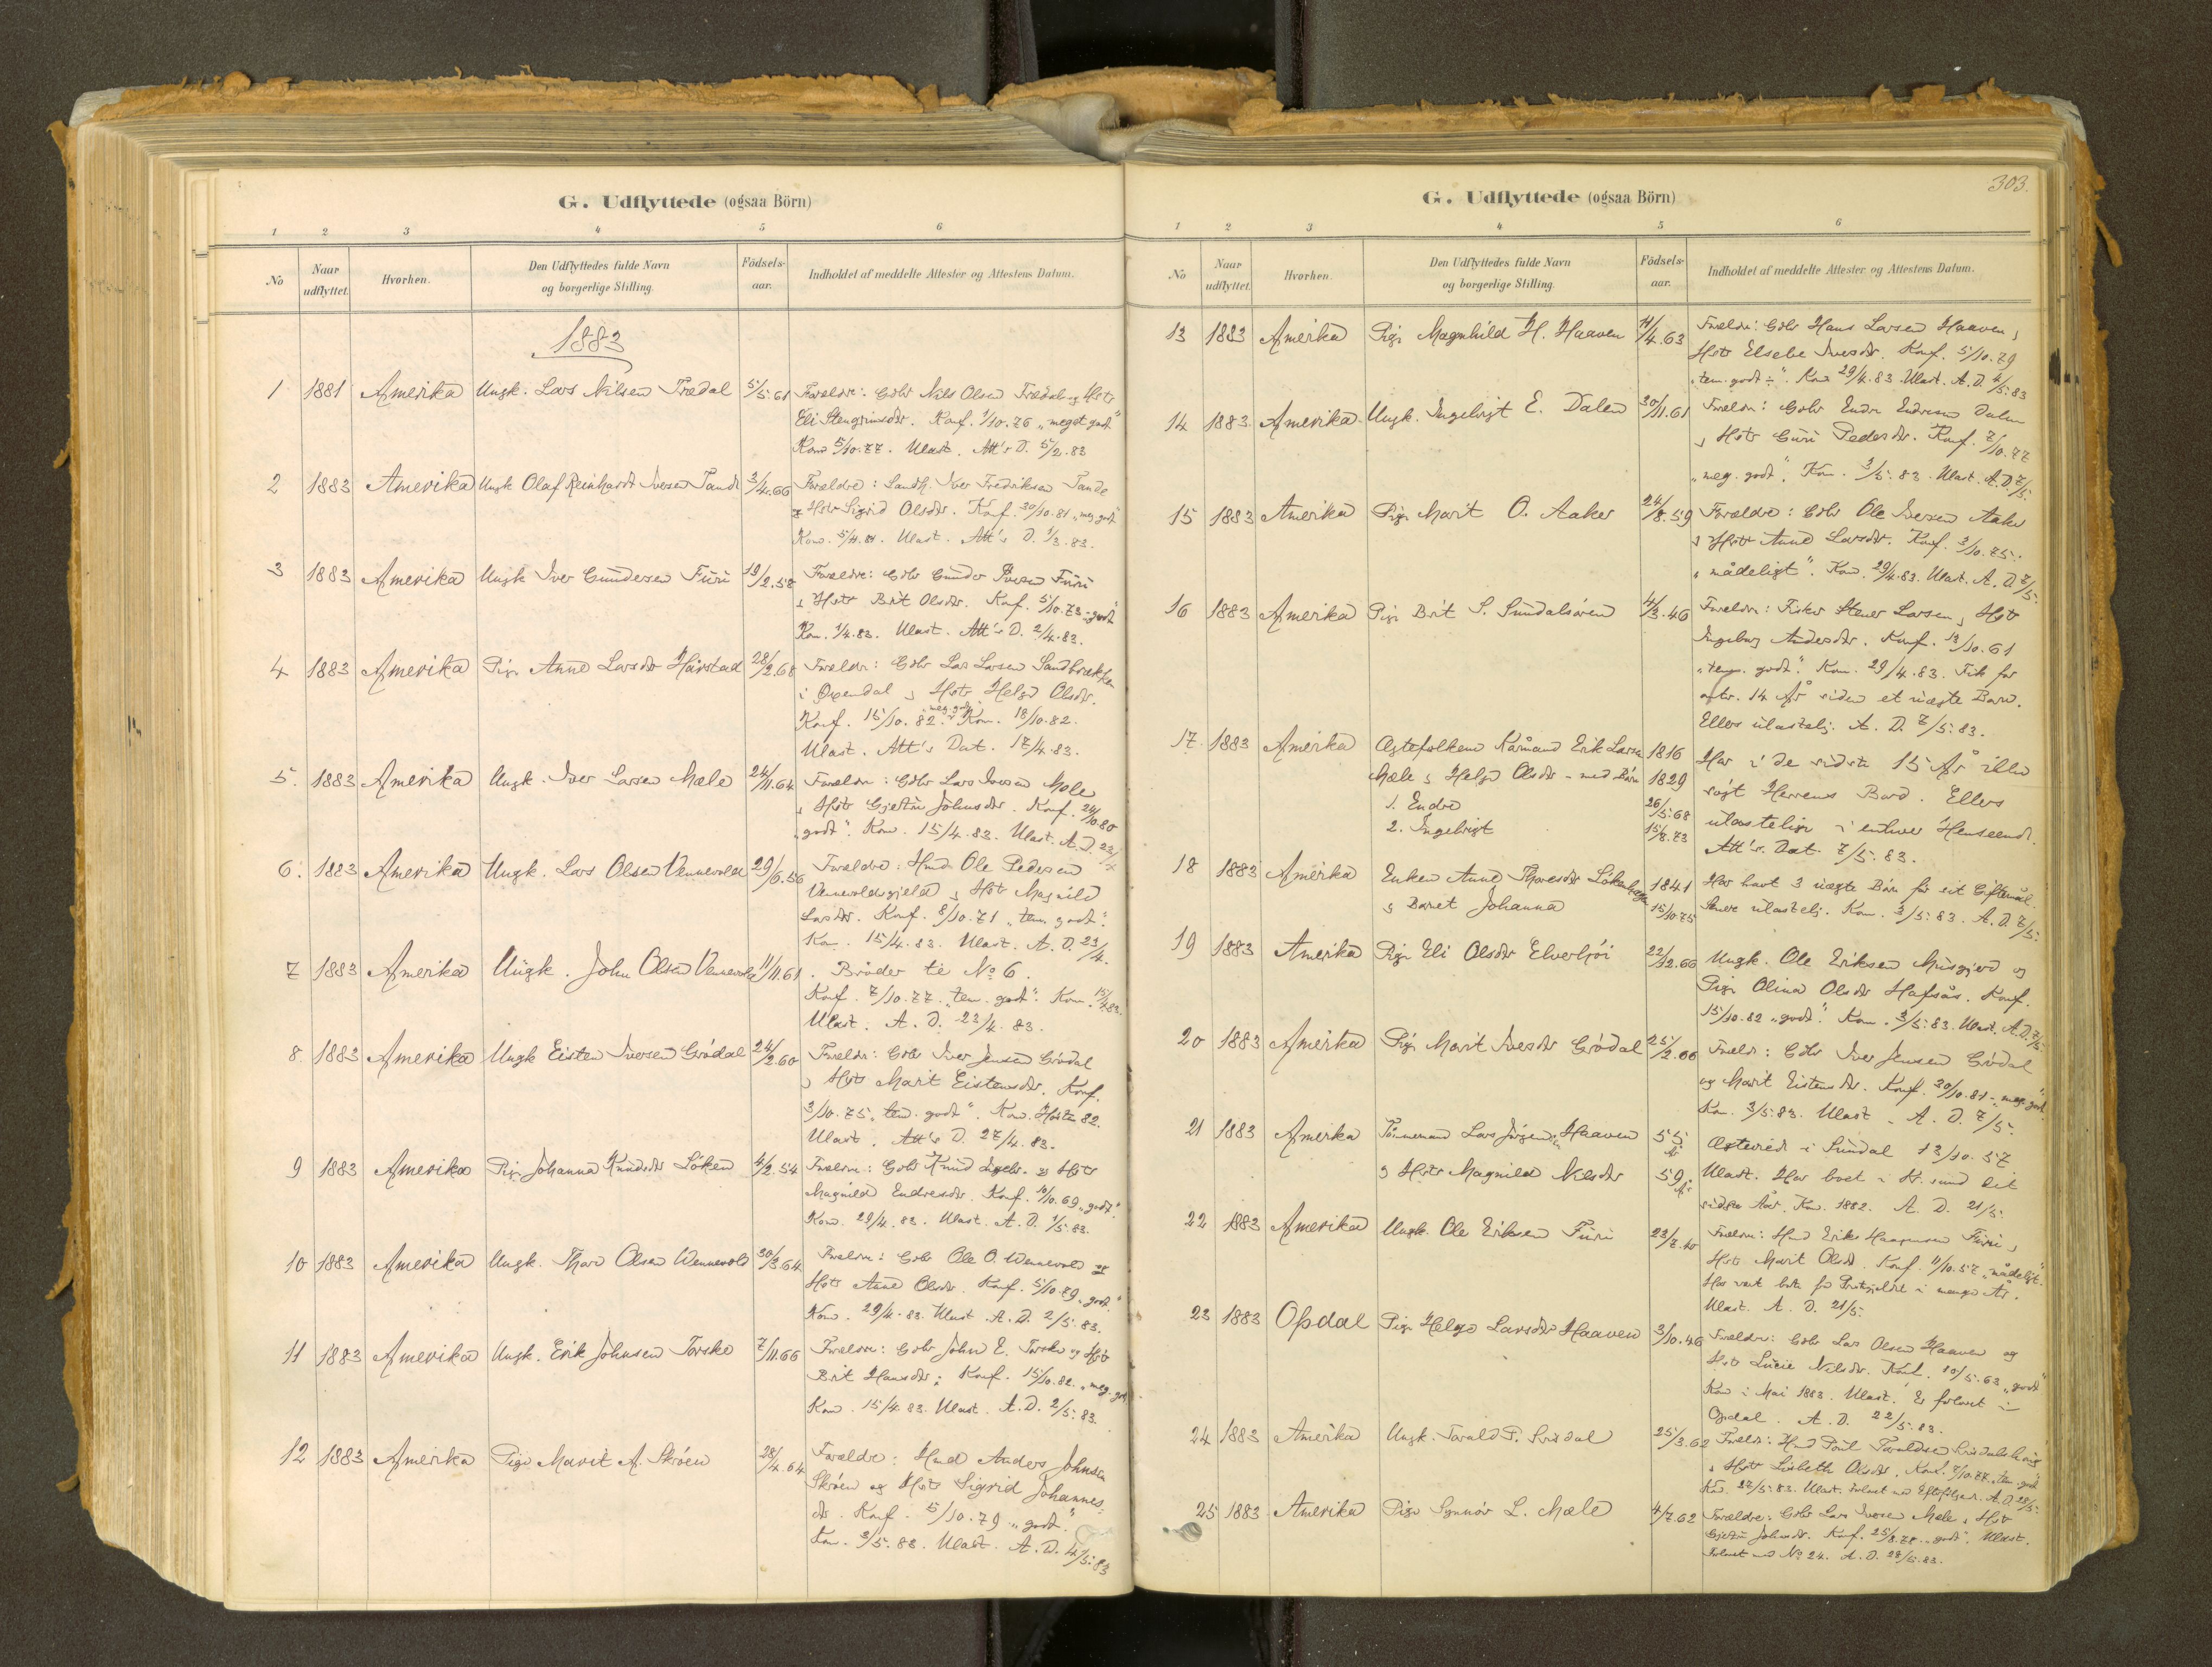 G. Udflyttede (ogsaa Börn)
1 2 3 4 5 6
No Naar udflyttet. Hvorhen. Den Udflyttedes fulde Navn og borgerlige Stilling. Födsels-aar. Indholdet af meddelte Attester og Attestens Datum.
1883
1 1881 Amerika Ungk. Lars Nilsen Trædal 5/5.61 Forældre: Gdbr Nils Olsen Trædal og Hstr
Eli Stengrimsdtr. Konf. 1/10.76 „meget godt“
Kom 5/10.77. Ulast. Att's D. 5/2.83
2 1883 Amerika Ungk Olaf Reinhardt Iversen Tande 3/4.66 Forældre: Landh. Iver Fredriksen Tande
og Hstr Sigrid Olsdtr. Konf. 30/10.81 „meg godt“
Kom. Ulast. Att's D. 1/3.83.
3 1883 Amerika Ungk Iver Gundersen Furu 19/2.58 Forældre: Gdbr Gunder Iversen Furu
& Hstr Brit Olsdtr. Konf. 5/10.73 „godt“
Kom. 1/4.83. Ulast. Att's D. 2/4.83.
4 1883 Amerika Pige Anne Larsdtr Hårstad 28/2.68 Foreldre: Gdbr Lars Larsen Sandbrækken
i Øxendal & Hstr Helga Olsdtr.
Konf. 15/10.82. „meg godt“ Kom. 18/10.82.
Ulast. Att's Dat. 17/4.83.
5. 1883 Amerika Ungk. Iver Larsen Mæle 24/11.64 Forældre: Gdbr Lars Iversen Mæle
& Hstr Gjertru Johnsdtr. Konf. 24/10.80
„godt“. Kom. 15/4.83. Ulast. A.D. 23/4
6. 1883 Amerika Ungk. Lars Olsen Vennevold 29/6.56 Forældre: Hmd Ole Pedersen
Vennevoldsgjela & Hstr Magnild
Larsdtr. Konf. 8/10.71 „tem. godt“.
Kom. 15/4.83. Ulast. A.D. 23/4.
7 1883 Amerika Ungk. John Olsen Vennevold 11/11.61. Broder til No 6.
Konf. 7/10.77. „tem. godt“. Kom. 15/4.83.
Ulast. A.D. 23/4.83.
8. 1883 Amerika Ungk Eisten Iversen Grødal 24/2.60 Foreldre: Gdbr Iver Jensen Grødal
& Hstr Marit Eistensdtr. Konf.
3/10.75 „tem. godt“. Kom. Høsten 82.
Ulast. Att's D. 27/4.83.
9 1883 Amerika Pige Johanna Knudsdtr Løken 4/2.54 Foreldre: Gdbr Knud & Hstr
Magnild Endresdtr. Konf. 10/10.69 „godt“
Kom. 29/4.83. Ulast. A.D. 1/5.83.
10 1883 Amerika Ungk. Thore Olsen Wennevold 30/3.64 Foreldre: Gdbr Ole O. Wennevold og
Hstr Anne Olsdtr. Konf. 5/10.79 „godt“
Kom. 29/4.83. Ulast. A.D. 2/5.83.
11 1883 Amerika Ungk. Erik Johnsen Torske 7/11.66 Foreldre: Gdbr John E. Torske og Hstr
Brit Hansdtr. Konf. 15/10.82. „meg. godt
Kom. 15/4.83. Ulast. A.D. 2/5.83.
12 1883 Amerika Pige Marit A. Skrøen 28/4.64 Forældre: Hmd Anders Johnsen
Skrøen og Hstr Sigrid Johannes-
dtr. Konf. 5/10.79 „godt“.
Kom. 3/5.83. Ulast. A.D. 4/5.83
303.
G. Udflyttede (ogsaa Börn)
1 2 3 4 5 6
No Naar udflyttet. Hvorhen. Den Udflyttedes fulde Navn og borgerlige Stilling. Födsels-aar. Indholdet af meddelte Attester og Attestens Datum.
13 1883 Amerika Pige Magnhild H. Haaven 11/4.63 Foreldre: Gdbr Hans Larsen Haaven &
Hstr Elsebe Iversdtr. Konf. 5/10.79
„tem. godt ÷“. Kom 29/4.83. Ulast. A.D. 4/5.83
14 1883 Amerika Ungk. Ingebrigt E. Dalen 30/11.61 Foreldre: Gdbr Endre Endresen Dalen
& Hstr Guri Pedersdtr. Konf. 7/10.77
„meg. godt“. Kom. 3/5.83. Ulast. A.D. 7/5.
15 1883 Amerika Pige Marit O. Aaker 24/8.59 Forældre: Gdbr Ole Iversen Aaker
& Hstr Anne Larsdtr. Konf. 3/10.75.
„mådeligt“. Kom. 29/4.83. Ulast. A.D. 7/5.
16 1883 Amerika Pige Brit S. Sundalsøren 4/3.46 Forældre: Fisker Stener Larsen & Hstr
Ingeborg Andersdtr. Konf. 13/10.61
„tem. godt“. Kom. 29/4.83. Fik for
omtr. 14 År siden et uægte Barn.
Ellers ulastelig. A.D. 7/5.83.
17. 1883 Amerika Ægtefolkene Kårmand Erik Larsen 1816 Har i de sidste 15 År ikke
Mæle & Helga Olsdtr - med Børn 1829 søgt Herrens Bord. Ellers
1. Endre 26/5.68 ulastelige i enhver Henseende.
2. Ingebrigt 15/8.73 Att's. Dat. 7/5.83.
18 1883 Amerika Enken Anne Thoresdtr Løkenhagen 1841 Har havt 3 uægte Børn før sit Giftemål.
& Barnet Johanna 15/10.75 Senere ulastelig. Kom. 3/5.83. A.D. 7/5.
19 1883 Amerika Pige Eli Olsdtr Elverhøi 22/12.66 Ungk. Ole Eriksen Musgjerd og
Pige Olina Olsdtr Hafsås. Konf.
15/10.82 „godt“. Kom. 3/5.83. Ulast. A.D. 7/5.
20 1883 Amerika Pige Marit Iversdtr Grødal 25/2.66 Foreldr: Gdbr Iver Jensen Grødal
og Marit Eistensdtr. Konf. 30/10.81 - „meg. godt“
Kom. 3/5.83. Ulast - A.D. 7/5.
21 1883 Amerika Tømmermand Lars Jörgensen Haaven 55 År Ægteviet i Sundal 13/10.57
& Hstr Magnild Nilsdtr 59 År Ulast. Har boet i Kr.sund det
sidste Aar. Kom. 1882. A.D. 21/5.
22 1883 Amerika Ungk. Ole Eriksen Furu 23/7.40 Foreldre: Hmd Erik Haagensen Furu &
Hstr Marit Olsdtr. Konf. 11/10.57 „mådeligt“.
Har vært borte fra Præstegjeldet i mange År.
Ulast. A.D. 21/5.
23 1883 Opdal Pige Helga Larsdtr Haaven 3/10.46 Forældre: Gdbr Lars Olsen Haaven og
Hstr Lucie Nilsdtr. Konf. 10/5.63 „godt“
Kom i Mai 1883. Ulast. Er forlovet i
Opdal. A.D. 22/5.83.
24 1883 Amerika Ungk. Tarald P. 25/3.62 Foreldr: Hmd Poul Taraldsen
& Hstr Lisbeth Olsdtr. Konf. 7/10.77 „tem. godt
Kom. 27/5.83. Ulast. Forlovet med Efterfølgende. A.D. 28/5.
25 1883 Amerika Pige Synnøv L. Mæle 4/7.62 Forældre: Gdbr Lars Iversen Mæle & Hstr
Gjertru Johnsdtr. Konf. 25/8.78 „godt“. Ulast.
Forlovet med No 24. A.D. 28/5.83.